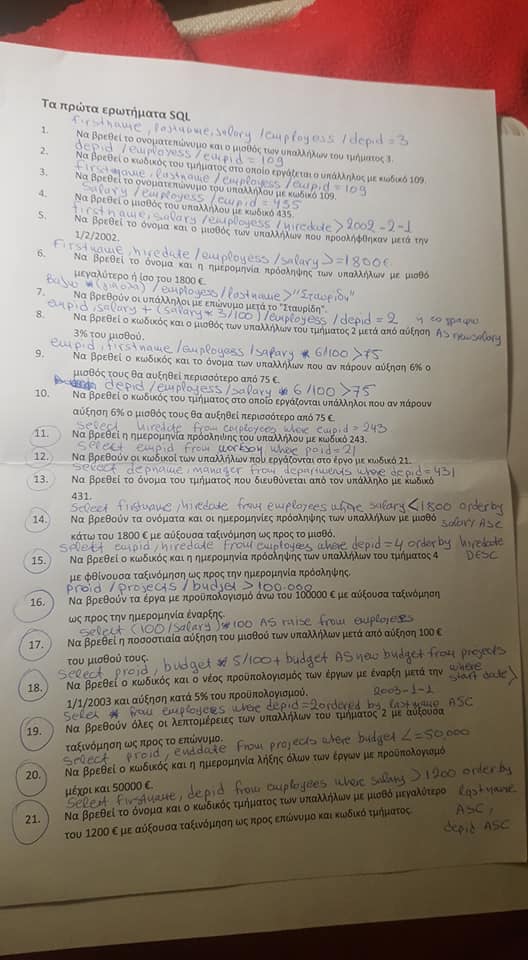 Τα πρώτα ερωτήματα SQL
firstname, lastname, salary /employess / depid = 3
1. Να βρεθεί το ονοματεπώνυμο και ο μισθός των υπαλλήλων του τμήματος 3.
depid / employess / empid = 109
2. Να βρεθεί ο κωδικός του τμήματος στο οποίο εργάζεται ο υπάλληλος με κωδικό 109.
firstname, lastname / employess / empid = 109
3. Να βρεθεί το ονοματεπώνυμο του υπαλλήλου με κωδικό 109.
salary / employess / empid = 435
4. Να βρεθεί ο μισθός του υπαλλήλου με κωδικό 435.
firstname, salary / employess / hiredate > 2002-2-1
5. Να βρεθεί το όνομα και ο μισθός των υπαλλήλων που προσλήφθηκαν μετά την
1/2/2002.
firstname, hiredate / employess / salary >= 1800€
6. Να βρεθεί το όνομα και η ημερομηνία πρόσληψης των υπαλλήλων με μισθό
μεγαλύτερο ή ίσο του 1800 €.
Βαζω * (για ολα) / employess / lastname > "Σταυρίδη"
7. Να βρεθούν οι υπάλληλοι με επώνυμο μετά το "Σταυρίδη".
empid, salary + (salary * 3/100) / employess / depid = 2 AS newsalary
8. Να βρεθεί ο κωδικός και ο μισθός των υπαλλήλων του τμήματος 2 μετά από αύξηση
3% του μισθού.
empid, firstname / employess / salary * 6/100 > 75
9. Να βρεθεί ο κωδικός και το όνομα των υπαλλήλων που αν πάρουν αύξηση 6% ο
μισθός τους θα αυξηθεί περισσότερο από 75 €.
depid / employess / salary * 6/100 > 75
10. Να βρεθεί ο κωδικός του τμήματος στο οποίο εργάζονται υπάλληλοι που αν πάρουν
αύξηση 6% ο μισθός τους θα αυξηθεί περισσότερο από 75 €.
select hiredate from employees where empid = 243
11. Να βρεθεί η ημερομηνία πρόσληψης του υπαλλήλου με κωδικό 243.
Select empid from workson where poid = 21
12. Να βρεθούν οι κωδικοί των υπαλλήλων που εργάζονται στο έργο με κωδικό 21.
Select depname, manager from departments where depid = 431
13. Να βρεθεί το όνομα του τμήματος που διευθύνεται από τον υπάλληλο με κωδικό
431.
Select firstname, hiredate from employees where salary < 1800 order by
salary ASC
14. Να βρεθούν τα ονόματα και οι ημερομηνίες πρόσληψης των υπαλλήλων με μισθό
κάτω του 1800 € με αύξουσα ταξινόμηση ως προς το μισθό.
select empid, hiredate from employees where depid = 4 order by hiredate
DESC
15. Να βρεθεί ο κωδικός και η ημερομηνία πρόσληψης των υπαλλήλων του τμήματος 4
με φθίνουσα ταξινόμηση ως προς την ημερομηνία πρόσληψης.
proid / projects / budjet > 100.000
16. Να βρεθούν τα έργα με προϋπολογισμό άνω του 100000 € με αύξουσα ταξινόμηση
ως προς την ημερομηνία έναρξης.
select (100/salary) * 100 AS raise from employees
17. Να βρεθεί η ποσοστιαία αύξηση του μισθού των υπαλλήλων μετά από αύξηση 100 €
του μισθού τους.
Select proid, budget * 5/100 + budget AS new budget from projects
where
start date >
18. Να βρεθεί ο κωδικός και ο νέος προϋπολογισμός των έργων με έναρξη μετά την
1/1/2003 και αύξηση κατά 5% του προϋπολογισμού. 2003-1-1
Selec * from employees where depid = 2 ordered by lastname ASC
19. Να βρεθούν όλες οι λεπτομέρειες των υπαλλήλων του τμήματος 2 με αύξουσα
ταξινόμηση ως προς το επώνυμο.
Select proid, enddate from projects where budget <= 50,000
20. Να βρεθεί ο κωδικός και η ημερομηνία λήξης όλων των έργων με προϋπολογισμό
μέχρι και 50000 €.
Select firstname, depid from employees where salary > 1200 order by
lastname
ASC,
depid ASC
21. Να βρεθεί το όνομα και ο κωδικός τμήματος των υπαλλήλων με μισθό μεγαλύτερο
του 1200 € με αύξουσα ταξινόμηση ως προς επώνυμο και κωδικό τμήματος.